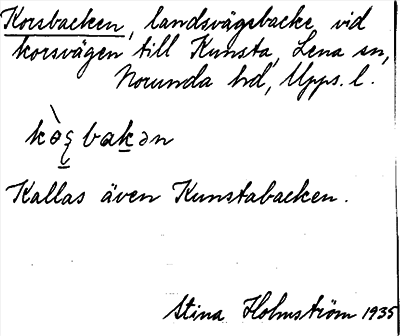 Korsbacken, landsvägsbacke vid
korsvägen till Kunsta, Lena sn,
Norunda hd, Upps. l.
Kallas även Kunstabacken.
Stina Holmström 1935